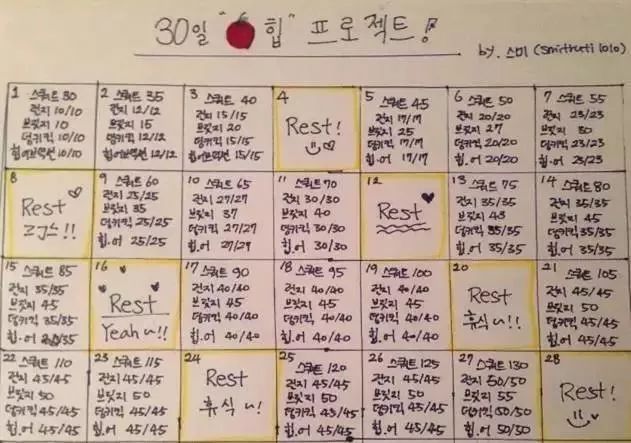 30일 " 힙" 프로젝트!
by. 스미 (smitruti1010)
1 스쿼트 30
런지 10/10
브릿지 10
덩키킥 10/10
힙어브덕션 10/10
2 스쿼트 35
런지 12/12
브릿지 15
덩키킥 12/12
힙어브덕션 12/12
3 스쿼트 40
런지 15/15
브릿지 20
덩키킥 15/15
힙어브덕션 15/15
4
Rest!
5 스쿼트 45
런지 17/17
브릿지 25
덩키킥 17/17
힙.어 17/17
6 스쿼트 50
런지 20/20
브릿지 27
덩키킥 20/20
힙.어 20/20
7 스쿼트 55
런지 23/23
브릿지 30
덩키킥 23/23
힙.어 23/23
8
Rest
9 스쿼트 60
런지 25/25
브릿지 35
덩키킥 25/25
힙.어 25/25
10 스쿼트 65
런지 27/27
브릿지 37
덩키킥 27/27
힙.어 27/27
11 스쿼트 70
런지 30/30
브릿지 40
덩키킥 30/30
힙.어 30/30
12
Rest
13 스쿼트 75
런지 35/35
브릿지 43
덩키킥 35/35
힙.어 35/35
14 스쿼트 80
런지 35/35
브릿지 45
덩키킥 35/35
힙.어 35/35
15 스쿼트 85
런지 35/35
브릿지 45
덩키킥 35/35
힙.어 35/35
16
Rest
Yeah~!!
17 스쿼트 90
런지 40/40
브릿지 45
덩키킥 40/40
힙.어 40/40
18 스쿼트 95
런지 40/40
브릿지 45
덩키킥 40/40
힙.어 40/40
19 스쿼트 100
런지 40/40
브릿지 45
덩키킥 40/40
힙.어 40/40
20
Rest
휴식~!!
21 스쿼트 105
런지 45/45
브릿지 50
덩키킥 45/45
힙.어 45/45
22 스쿼트 110
런지 45/45
브릿지 50
덩키킥 45/45
힙.어 45/45
23 스쿼트 115
런지 45/45
브릿지 50
덩키킥 45/45
힙.어 45/45
24
Rest
휴식~!
25 스쿼트 120
런지 45/45
브릿지 50
덩키킥 45/45
힙.어 45/45
26 스쿼트 125
런지 45/45
브릿지 50
덩키킥 45/45
힙.어 45/45
27 스쿼트 130
런지 50/50
브릿지 55
덩키킥 50/50
힙.어 50/50
28
Rest!